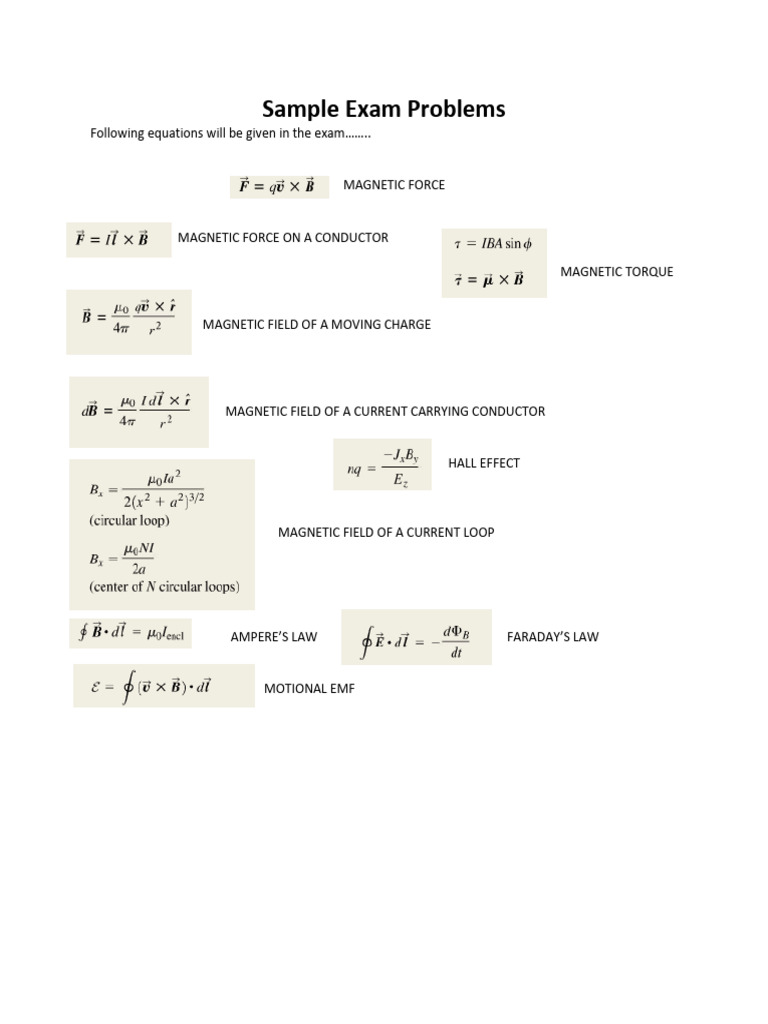 Sample Exam Problems
Following equations will be given in the exam……..
F⃗ = qv⃗ × B⃗ MAGNETIC FORCE
F⃗ = Il⃗ × B⃗ MAGNETIC FORCE ON A CONDUCTOR
τ = IBA sin ϕ
τ⃗ = μ⃗ × B⃗ MAGNETIC TORQUE
B⃗ = μ₀/4π qv⃗ × r̂/r² MAGNETIC FIELD OF A MOVING CHARGE
dB⃗ = μ₀/4π I dl⃗ × r̂/r² MAGNETIC FIELD OF A CURRENT CARRYING CONDUCTOR
nq = −JₓB_y/E_z HALL EFFECT
Bₓ = μ₀Ia²/2(x² + a²)^3/2
(circular loop)
MAGNETIC FIELD OF A CURRENT LOOP
Bₓ = μ₀NI/2a
(center of N circular loops)
∮ B⃗ • dl⃗ = μ₀I_encl AMPERE'S LAW
∮ E⃗ • dl⃗ = − dΦ_B/dt FARADAY'S LAW
ℰ = ∮ (v⃗ × B⃗) • dl⃗ MOTIONAL EMF